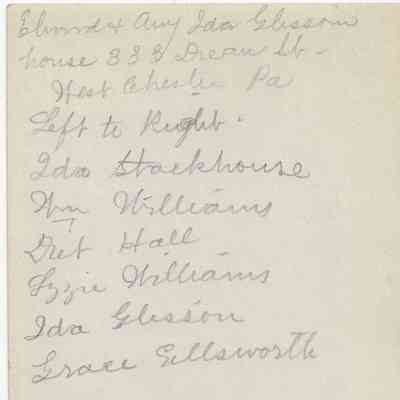 Elwood & Amy Ida Glisson
house 333 Dean St.
West Chester Pa
Left to Right.
Ida Stackhouse
Wm Williams
Diet Hall
Lizzie Williams
Ida Glisson
Grace Ellsworth